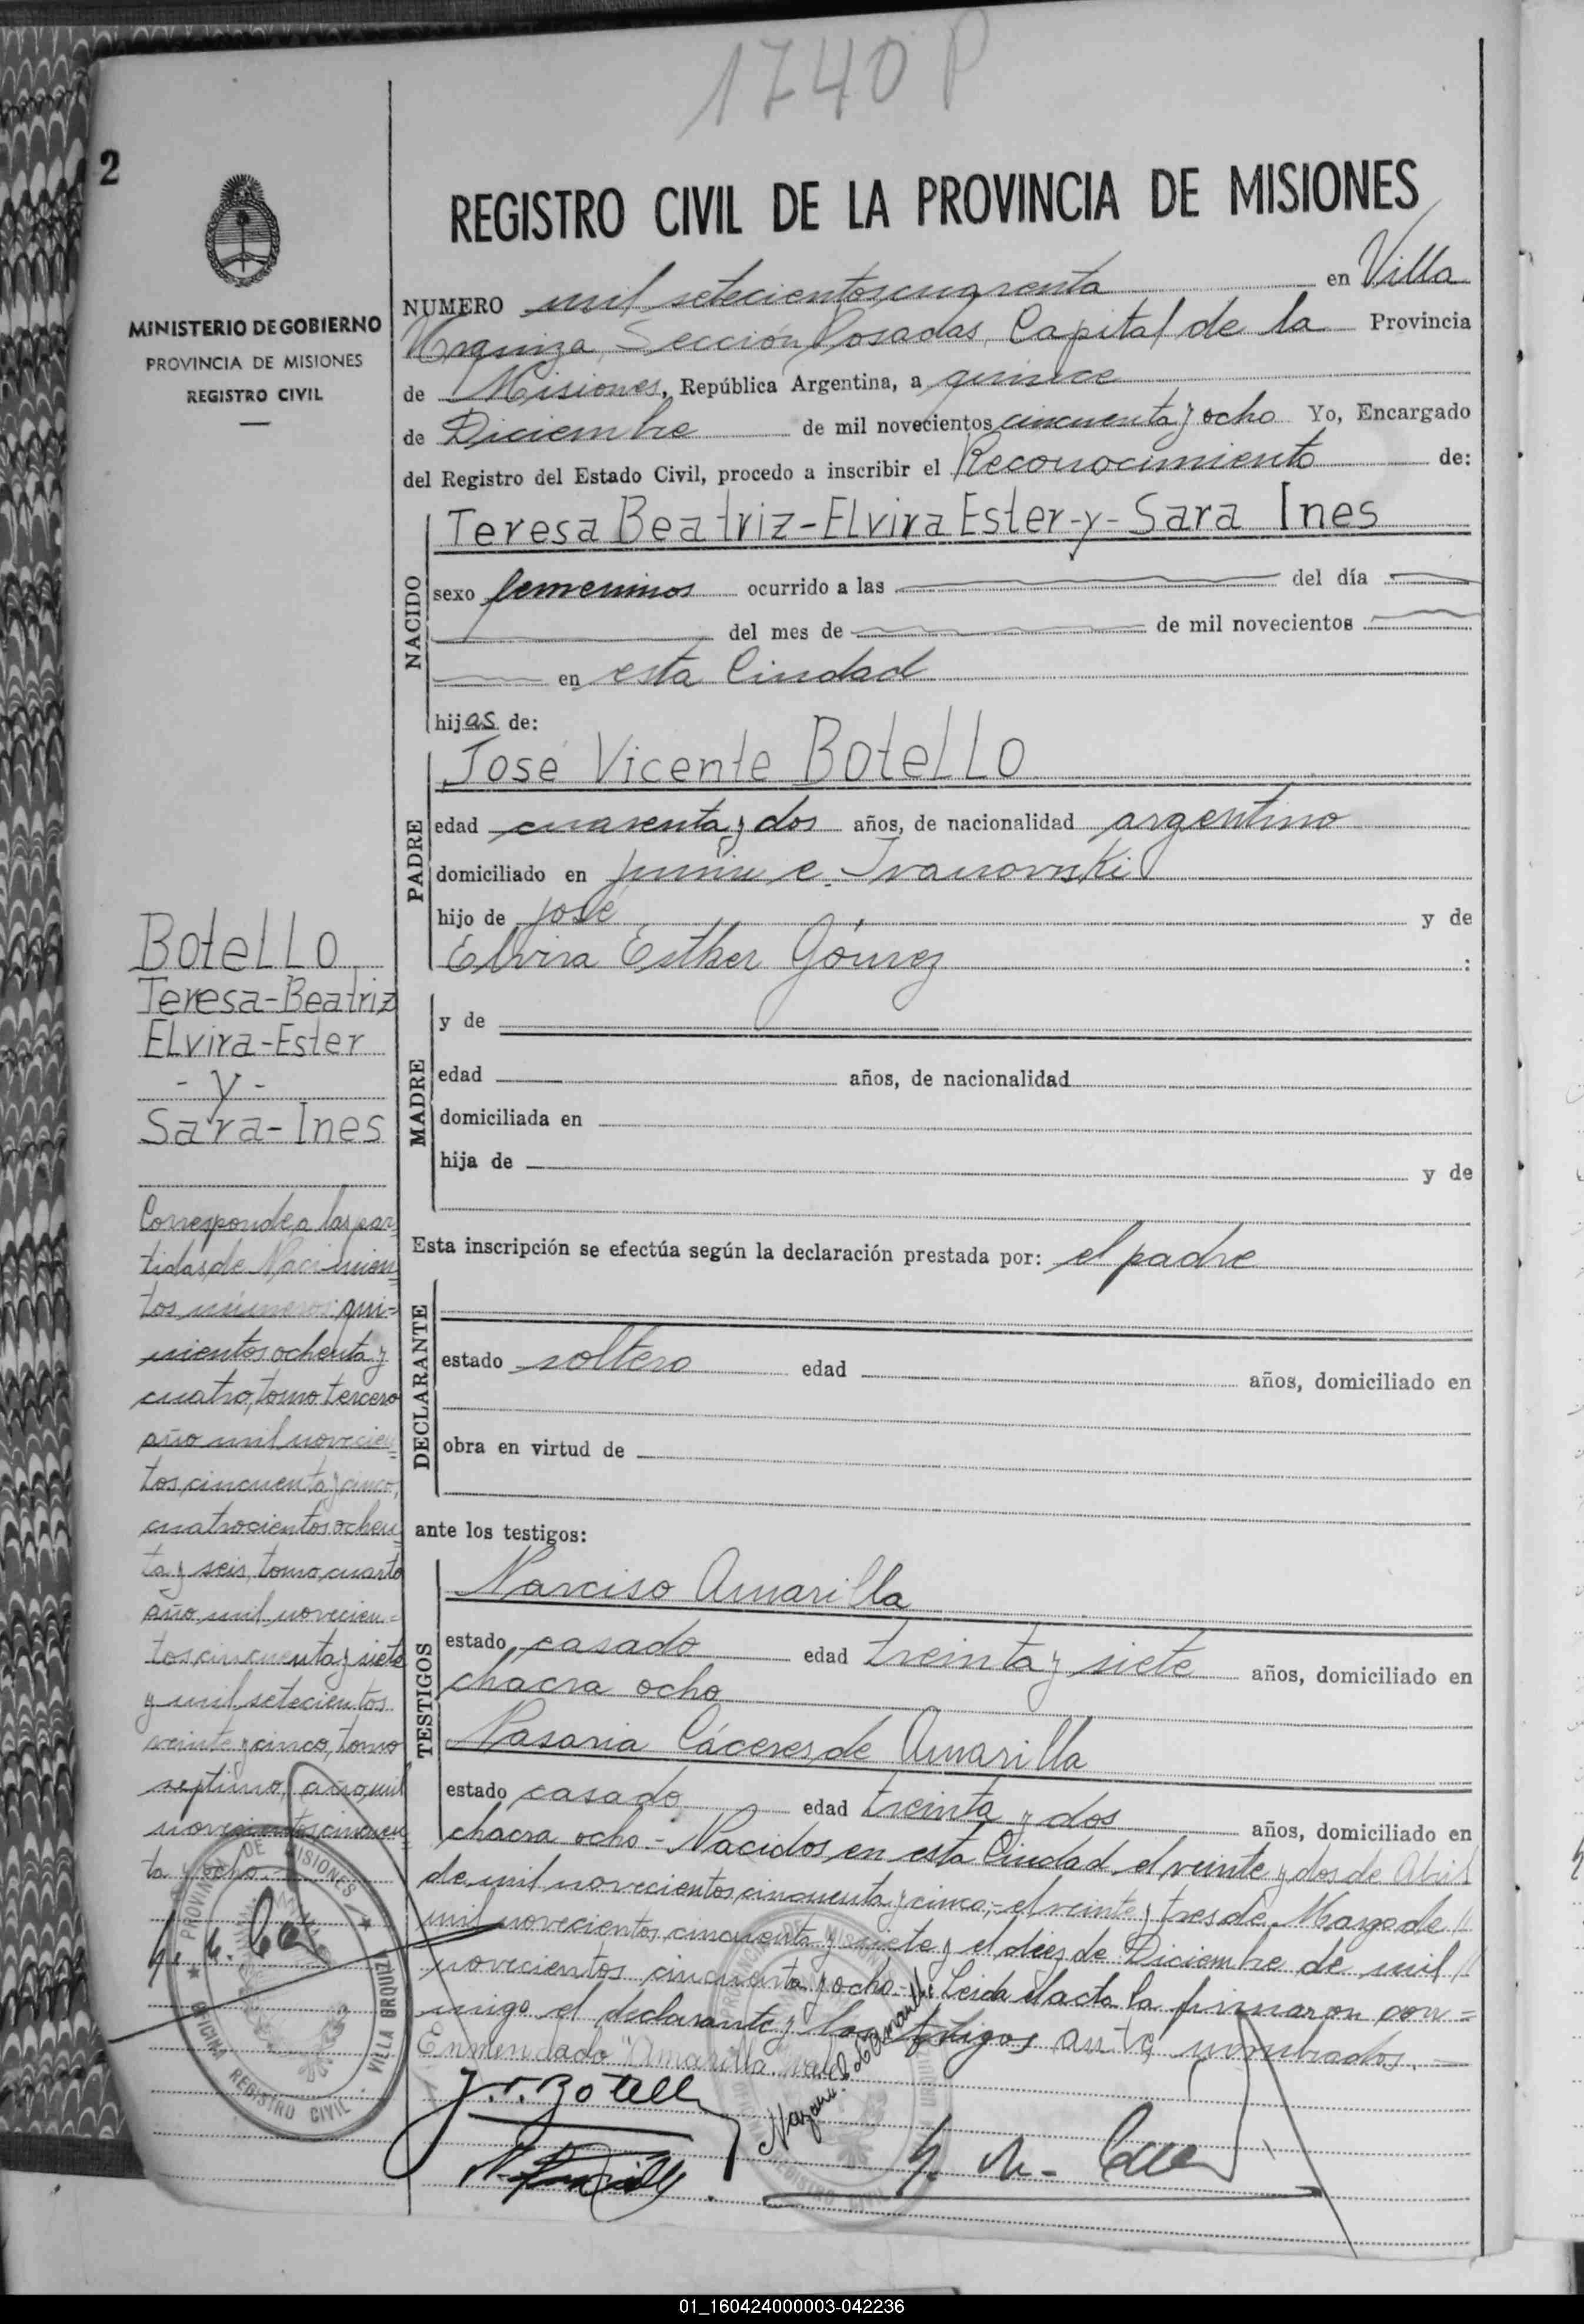 1740 P
2
REGISTRO CIVIL DE LA PROVINCIA DE MISIONES
MINISTERIO DE GOBIERNO
PROVINCIA DE MISIONES
REGISTRO CIVIL
NUMERO mil setecientos cuarenta en Villa
Urquiza, Sección Posadas, Capital de la Provincia
de Misiones, República Argentina, a quince
de Diciembre de mil novecientos cincuenta y ocho Yo, Encargado
del Registro del Estado Civil, procedo a inscribir el Reconocimiento de:
NACIDO
Teresa Beatriz-Elvira Ester-y-Sara Ines
sexo femeninos ocurrido a las del día
del mes de de mil novecientos
en esta Ciudad
hijas de:
PADRE
José Vicente Botello
edad cuarenta y dos años, de nacionalidad argentino
domiciliado en Junin e. Ivanovski
hijo de José y de
Elvira Esther Gómez :
MADRE
y de
edad años, de nacionalidad
domiciliada en
hija de y de
Esta inscripción se efectúa según la declaración prestada por: el padre
DECLARANTE
estado soltero edad años, domiciliado en
obra en virtud de
ante los testigos:
TESTIGOS
Narciso Amarilla
estado casado edad treinta y siete años, domiciliado en
chacra ocho
Nasaria Cáceres de Amarilla
estado casado edad treinta y dos años, domiciliado en
chacra ocho.- Nacidos en esta Ciudad el veinte y dos de Abril
de mil novecientos cincuenta y cinco,- el veinte y tres de Marzo de //
mil novecientos cincuenta y siete y el diez de Diciembre de mil //
novecientos cincuenta y ocho.- Leida el acta la firmaron con=
migo el declarante y los testigos ante nombrados.=
Enmendado "Amarilla" vale
J. V. Botello
Botello
Teresa-Beatriz
Elvira-Ester
- y -
Sara-Ines
Corresponde a las par=
tidas de Nacimien=
tos números: qui=
nientos ochenta y
cuatro, tomo tercero
año mil novecien=
tos cincuenta y cinco,
cuatrocientos ochen=
ta y seis, tomo cuarto
año mil novecien=
tos cincuenta y siete
y mil setecientos
veinte y cinco, tomo
septimo, año mil
novecientos cincuen=
ta y ocho.-
PROVINCIA DE MISIONES
VILLA URQUIZA
OFICINA REGISTRO CIVIL
01_160424000003-042236